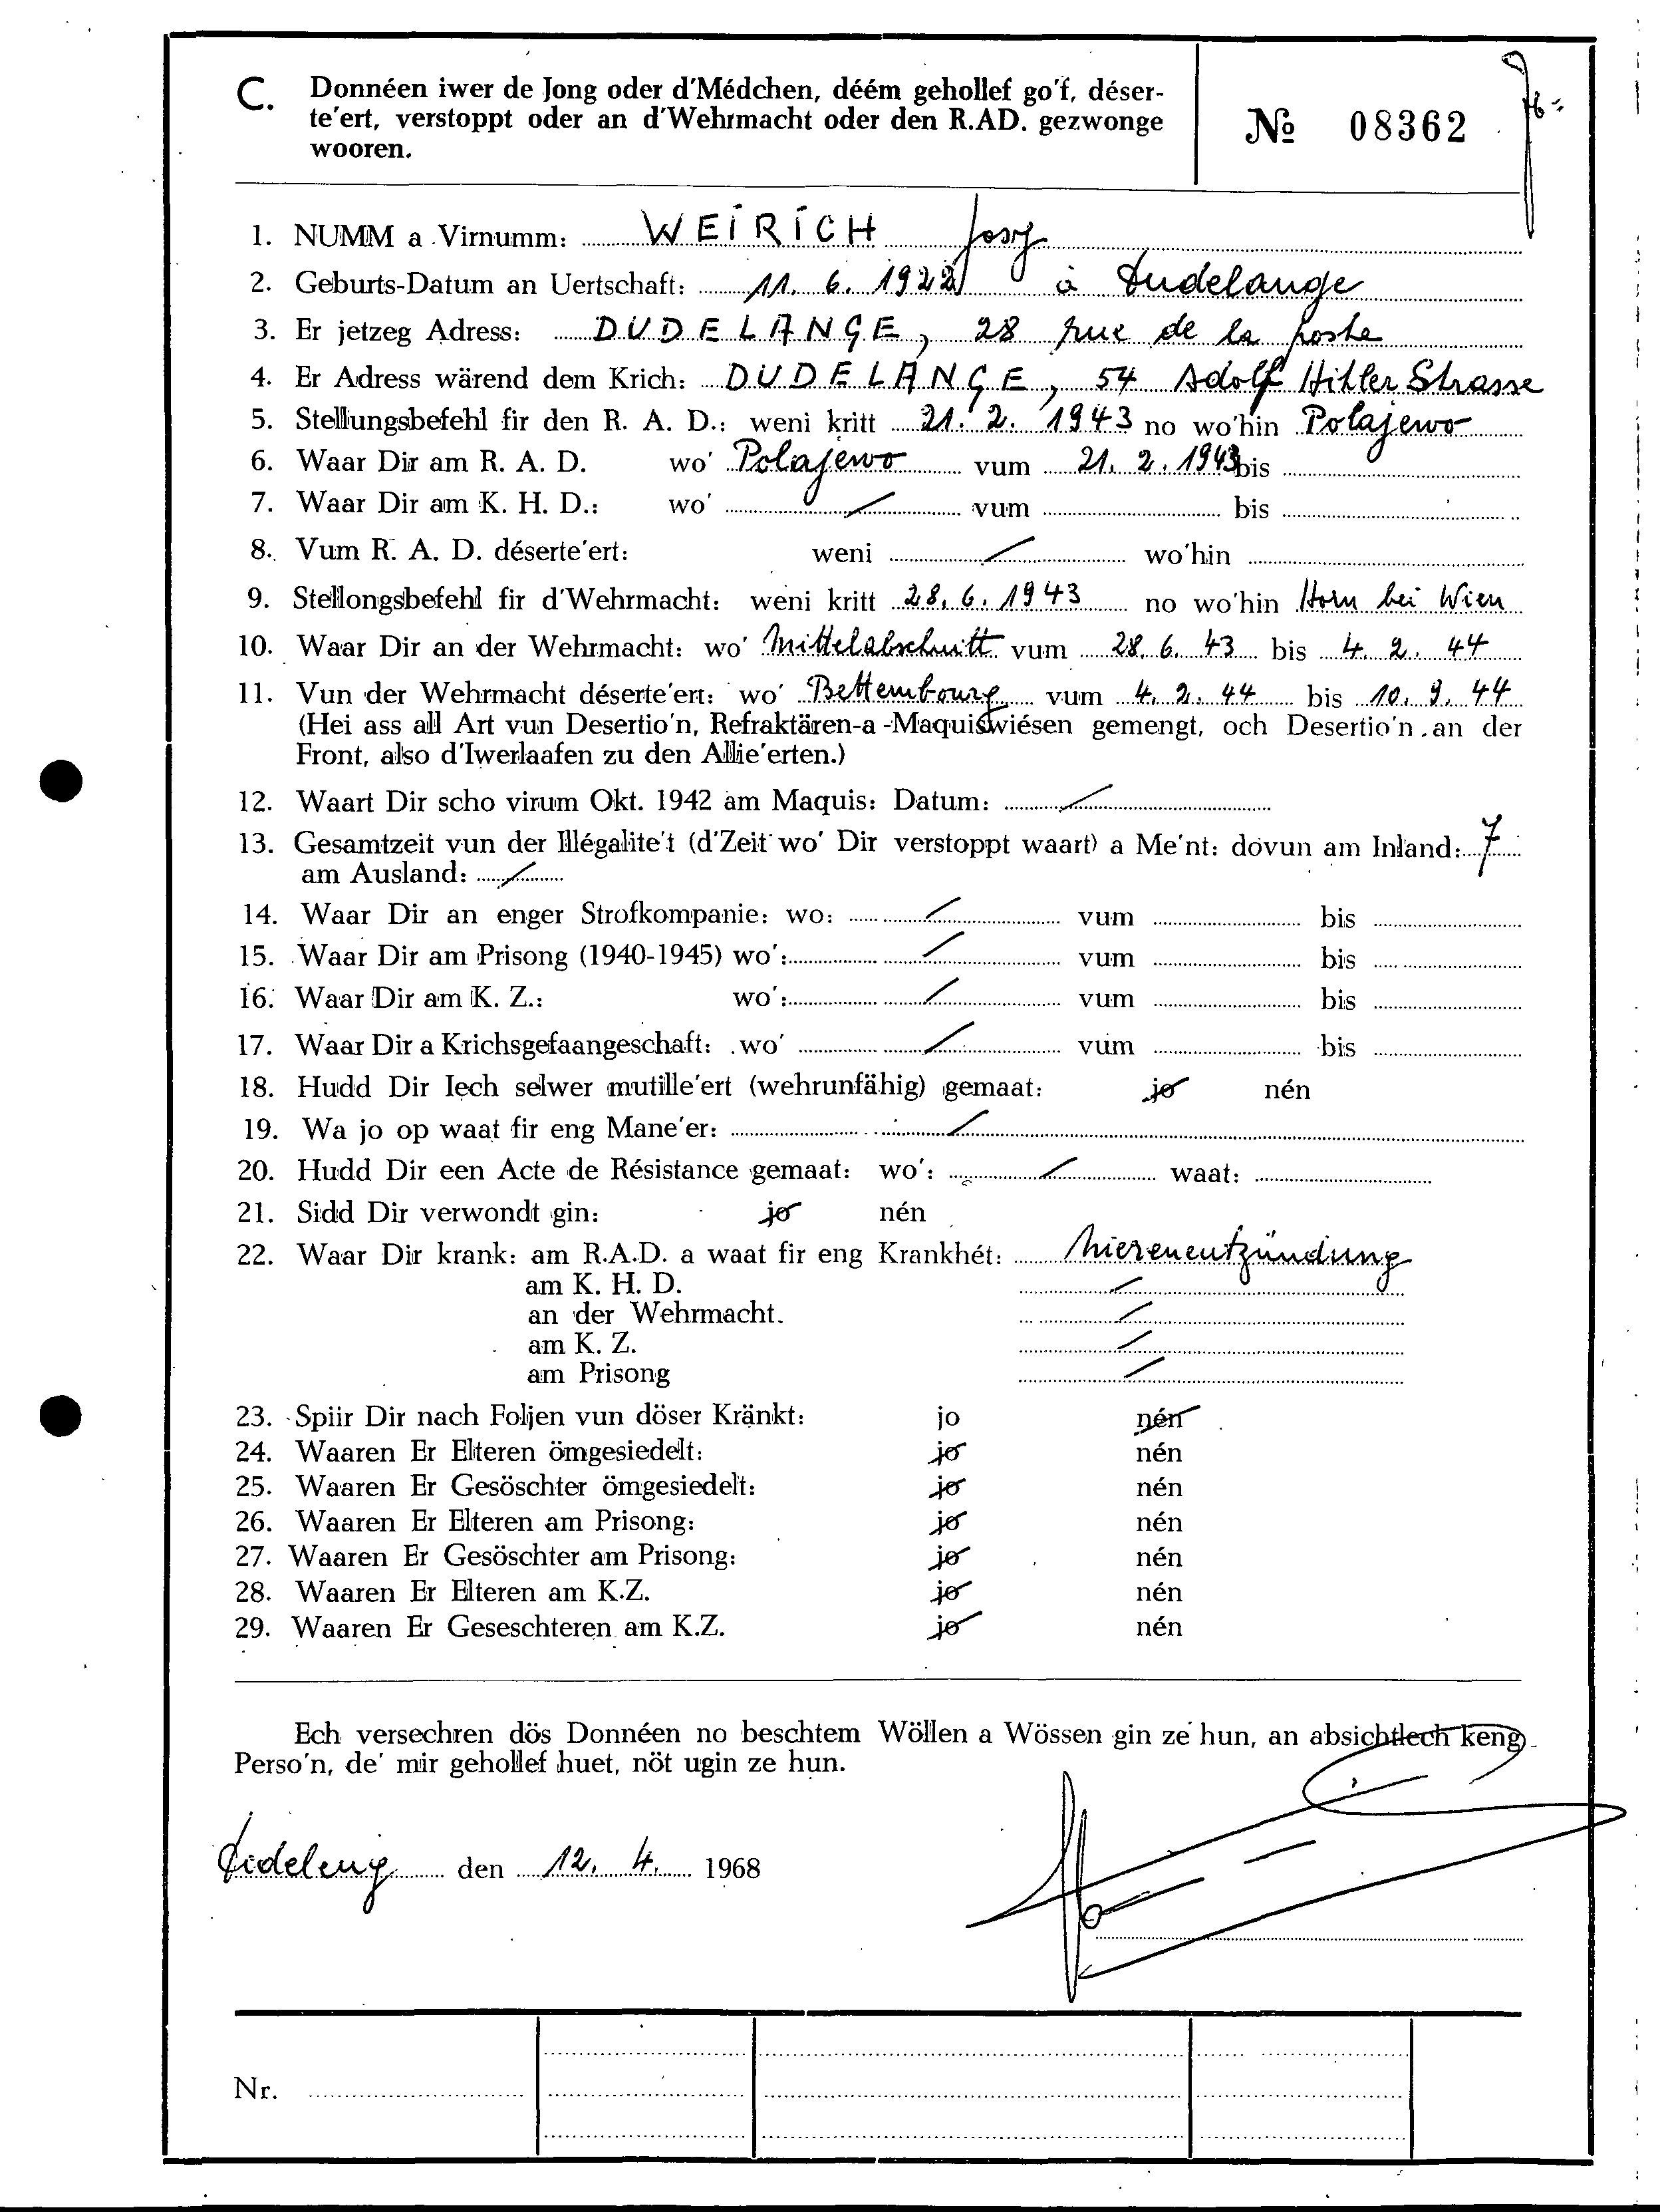 C. Donnéen iwer de Jong oder d'Médchen, déém gehollef go'f, déser-
te'ert, verstoppt oder an d'Wehrmacht oder den R.AD. gezwonge
wooren.
№ 08362
1. NUMM a Virnumm: WEIRICH Josy
2. Geburts-Datum an Uertschaft: 11. 6. 1922 à Dudelange
3. Er jetzeg Adress: DUDELANGE, 28 rue de la poste
4. Er Adress wärend dem Krich: DUDELANGE, 54 Adolf Hitler Strasse
5. Stellungsbefehl fir den R. A. D.: weni kritt 21. 2. 1943 no wo'hin Polajewo
6. Waar Dir am R. A. D. wo' Polajewo vum 21. 2. 1943 bis
7. Waar Dir am K. H. D.: wo' / vum bis
8. Vum R. A. D. déserte'ert: weni / wo'hin
9. Stellongsbefehl fir d'Wehrmacht: weni kritt 28. 6. 1943 no wo'hin Horn bei Wien
10. Waar Dir an der Wehrmacht: wo' Mittelabschnitt vum 28. 6. 43 bis 4. 2. 44
11. Vun der Wehrmacht déserte'ert: wo' Bettembourg vum 4. 2. 44 bis 10. 9. 44
(Hei ass all Art vun Desertio'n, Refraktären-a-Maquiswiésen gemengt, och Desertio'n an der
Front, also d'Iwerlaafen zu den Allie'erten.)
12. Waart Dir scho virum Okt. 1942 am Maquis: Datum: /
13. Gesamtzeit vun der Illégalite't (d'Zeit wo' Dir verstoppt waart) a Me'nt: dovun am Inland: 7
am Ausland: /
14. Waar Dir an enger Strofkompanie: wo: / vum bis
15. Waar Dir am Prisong (1940-1945) wo': / vum bis
16. Waar Dir am K. Z.: wo': / vum bis
17. Waar Dir a Krichsgefaangeschaft: wo' / vum bis
18. Hudd Dir Iech selwer mutille'ert (wehrunfähig) gemaat: jo nén
19. Wa jo op waat fir eng Mane'er: /
20. Hudd Dir een Acte de Résistance gemaat: wo': / waat:
21. Sidd Dir verwondt gin: jo nén
22. Waar Dir krank: am R.A.D. a waat fir eng Krankhét: Nierenentzündung
am K. H. D. /
an der Wehrmacht. /
am K. Z. /
am Prisong /
23. Spiir Dir nach Foljen vun döser Kränkt: jo nén
24. Waaren Er Elteren ömgesiedelt: jo nén
25. Waaren Er Gesöschter ömgesiedelt: jo nén
26. Waaren Er Elteren am Prisong: jo nén
27. Waaren Er Gesöschter am Prisong: jo nén
28. Waaren Er Elteren am K.Z. jo nén
29. Waaren Er Geseschteren am K.Z. jo nén
Ech versechren dös Donnéen no beschtem Wöllen a Wössen gin ze hun, an absichtlech keng
Perso'n, de' mir gehollef huet, nöt ugin ze hun.
Dideleng den 12. 4. 1968
Nr.